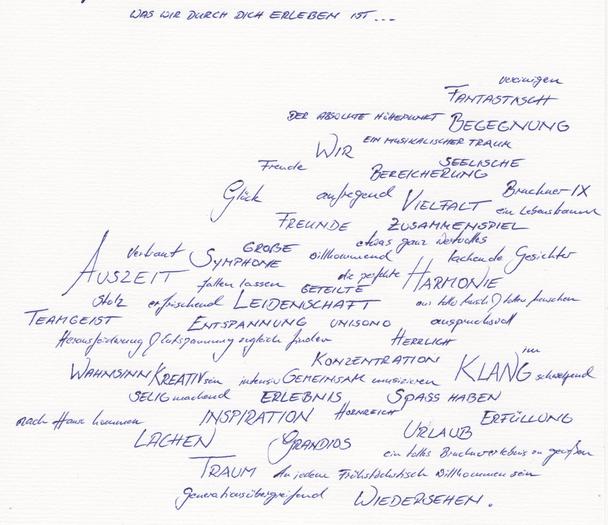 WAS WIR DURCH DICH ERLEBEN IST...
vereinigen
FANTASTISCH
DER ABSOLUTE HÖHEPUNKT BEGEGNUNG
WIR EIN MUSIKALISCHER TRAUM
Freude SEELISCHE
BEREICHERUNG
Glück aufregend VIELFALT Bruckner IX
ein Lebenstraum
FREUNDE ZUSAMMENSPIEL
vertraut GROßE etwas ganz Wertvolles
AUSZEIT SYMPHONIE willkommend lachende Gesichter
fallen lassen die perfekte HARMONIE
Stolz erfrischend LEIDENSCHAFT GETEILTE ein tolles
TEAMGEIST ENTSPANNUNG UNISONO anspruchsvoll
Herausforderung & Entspannung zugleich finden HERRLICH
WAHNSINN KREATIV sein intensiv GEMEINSAM musizieren KONZENTRATION im KLANG schwelgend
SELIG machend ERLEBNIS SPASS HABEN
nach Hause kommen INSPIRATION HORNREICH URLAUB ERFÜLLUNG
LACHEN GRANDIOS ein tolles Brucknererlebnis zu genießen
TRAUM An jedem Frühstückstisch Willkommen sein
generationsübergreifend WIEDERSEHEN.